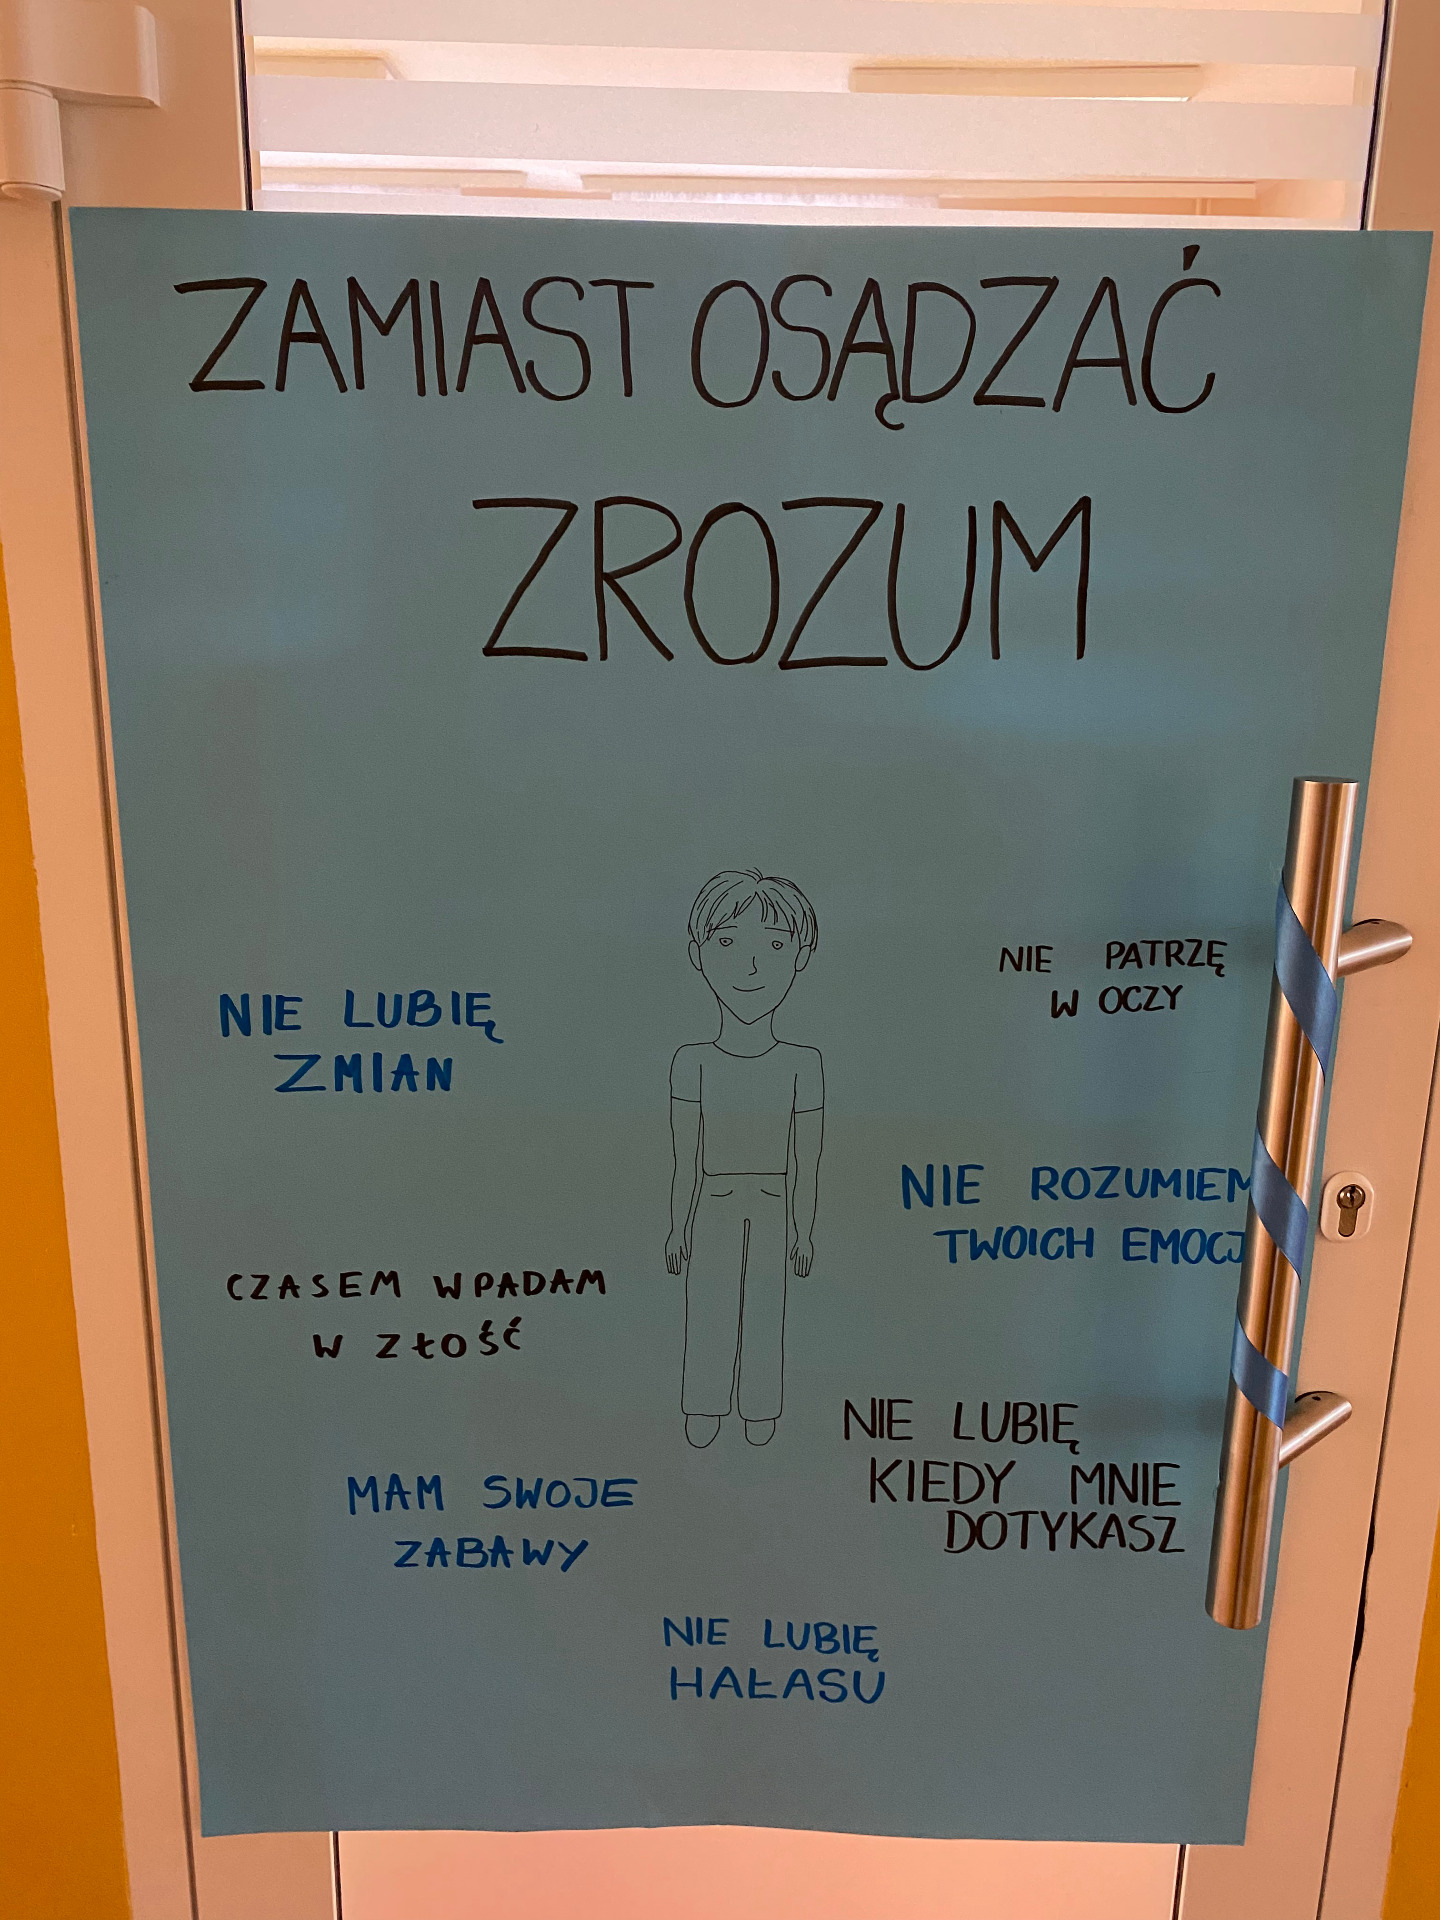 ZAMIAST OSĄDZAĆ
ZROZUM
NIE PATRZĘ
W OCZY
NIE LUBIĘ
ZMIAN
NIE ROZUMIEM
TWOICH EMOCJ
CZASEM WPADAM
W ZŁOŚĆ
NIE LUBIĘ
KIEDY MNIE
DOTYKASZ
MAM SWOJE
ZABAWY
NIE LUBIĘ
HAŁASU